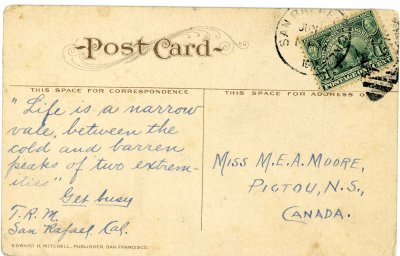 SAN RAFAEL
JUN
Post Card.
THIS SPACE FOR CORRESPONDENCE
THIS SPACE FOR ADDRESS
"Life is a narrow
vale, between the
cold and barren
peaks of two extrem-
ities"
Get busy
T.R.M.
San Rafael, Cal.
MISS M.E.A. MOORE,
PICTOU, N.S.,
CANADA.
EDWARD H. MITCHELL, PUBLISHER, SAN FRANCISCO.